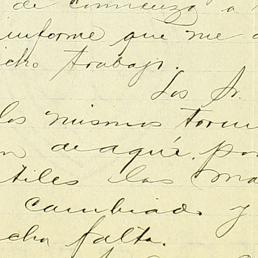 de comienzo a
informe que me
cho trabajo.
Los Sr.
los mismos term
n de aqui. po
tiles las ma
cambiado y
cha falta.